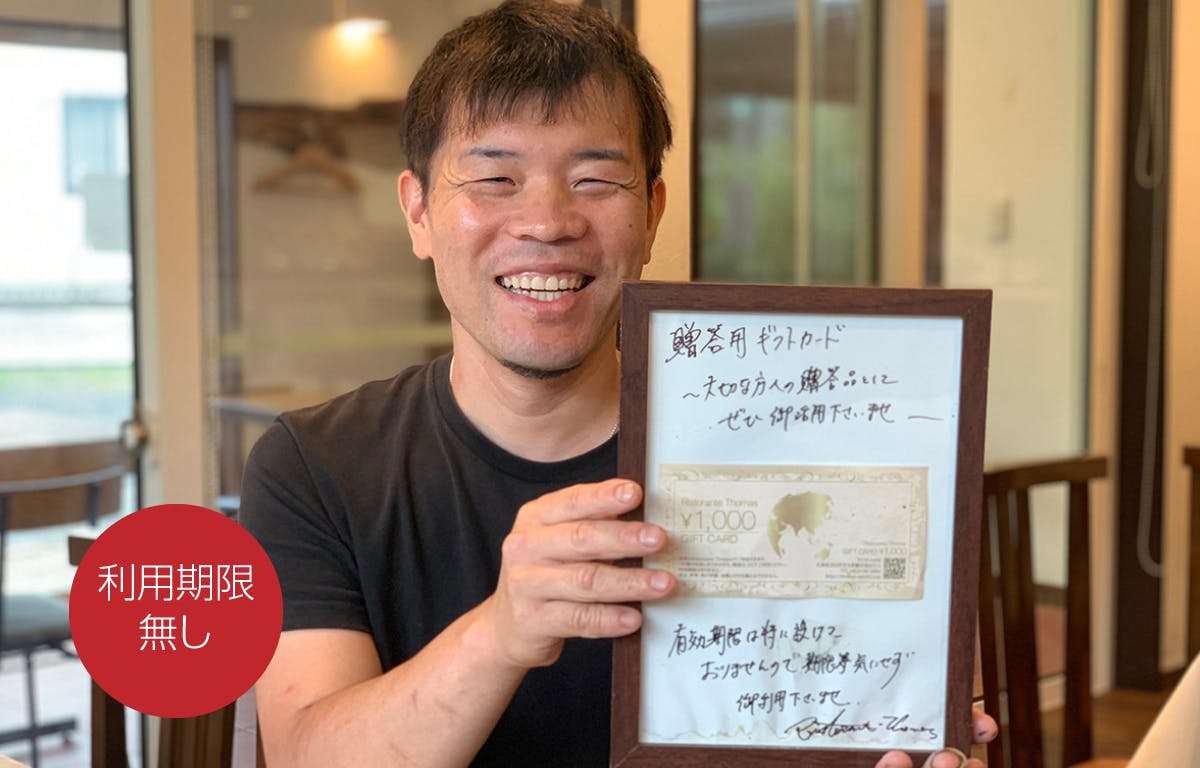 贈答用 ギフトカード
〜大切な方への贈答品として
ぜひ御活用下さいませ 〜
Ristorante Thomas
¥1,000
GIFT CARD
Ristorante Thomas
GIFT CARD ¥1,000
有効期限は特に設けて
おりませんので期限等気にせず
御利用下さいませ.
Ristorante Thomas
利用期限
無し